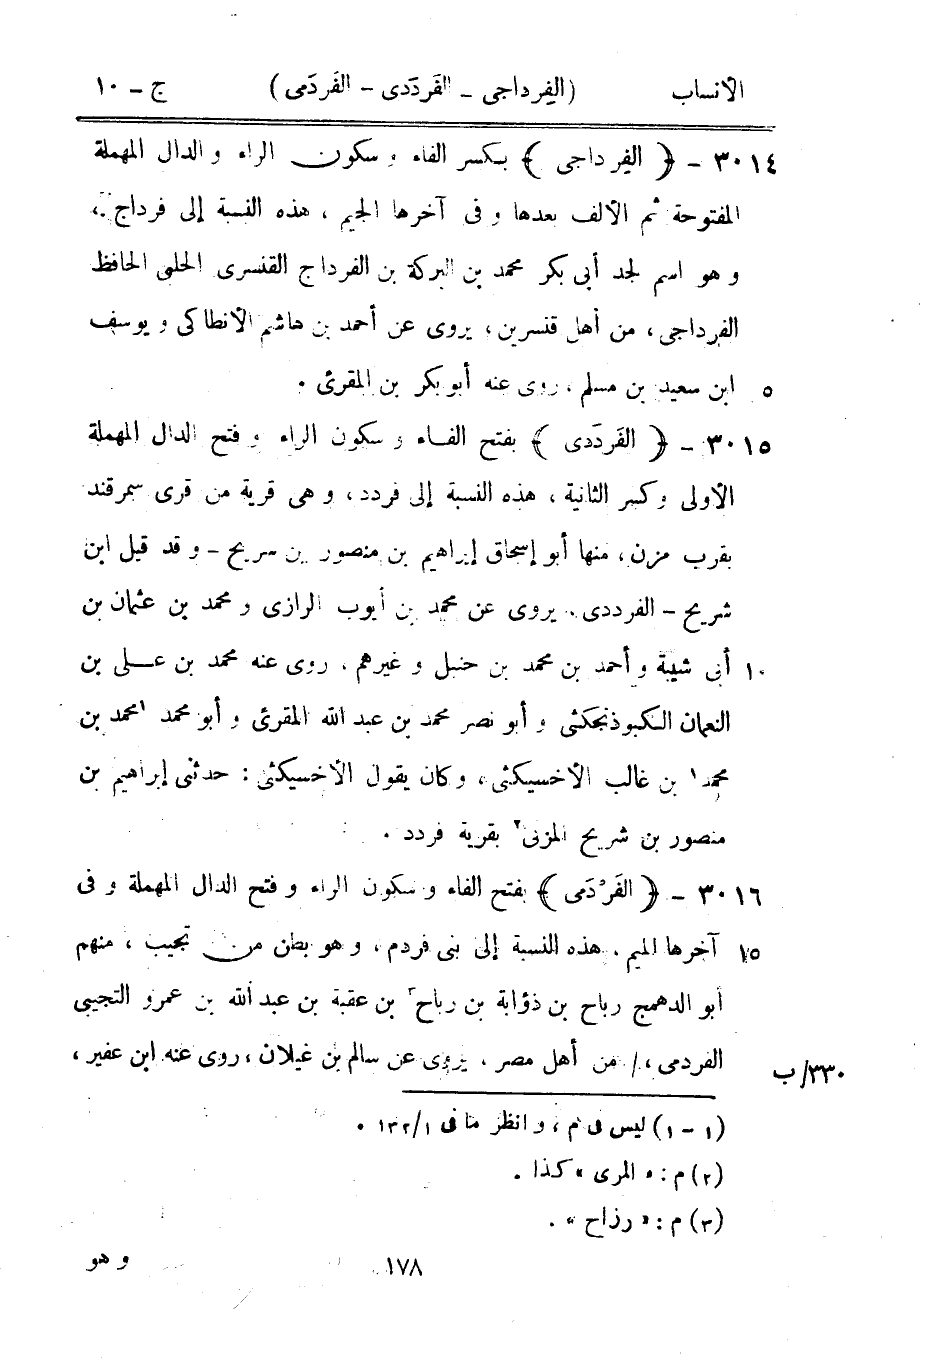 الأنساب (الفِرداجى – الفَردَدى – الفَردَمى) ج – ١٠
٣٠١٤ – ﴿ الفِرداجى ﴾ بكسر الفاء و سكون الراء و الدال المهملة
المفتوحة ثم الألف بعدها و فى آخرها الجيم ، هذه النسبة إلى فرداج ،
و هو اسم لجد أبى بكر محمد بن البركة بن الفرداج القنسرى الحلبى الحافظ
الفرداجى ، من أهل قنسرين ، يروى عن أحمد بن هاشم الأنطاكى و يوسف
٥ ابن سعيد بن مسلم ، روى عنه أبو بكر بن المقرئ .
٣٠١٥ – ﴿ الفَردَدى ﴾ بفتح الفاء و سكون الراء و فتح الدال المهملة
الأولى و كسر الثانية ، هذه النسبة إلى فردد ، و هى قرية من قرى سمرقند
بقرب مزن ، منها أبو إسحاق إبراهيم بن منصور بن سريح – و قد قيل ابن
شريح – الفرددى . يروى عن محمد بن أيوب الرازى و محمد بن عثمان بن
١٠ أبى شيبة و أحمد بن محمد بن حنبل و غيرهم . روى عنه محمد بن على بن
النعمان الكبوذنجكثى و أبو نصر محمد بن عبد الله المقرئ و أبو محمد ١محمد بن
محمد١ بن غالب الأخسيكثى ، و كان يقول الأخسيكثى : حدثنى إبراهيم بن
منصور بن شريح المزنى٢ بقرية فردد .
٣٠١٦ – ﴿ الفَرْدَمى ﴾ بفتح الفاء و سكون الراء و فتح الدال المهملة و فى
١٥ آخرها الميم . هذه النسبة إلى بنى فردم ، و هو بطن من تجيب ، منهم
أبو الدهمج رباح بن ذؤابة بن رباح٣ بن عقبة بن عبد الله بن عمرو التجيبى
٣٣٠/ب الفردمى ،/ من أهل مصر . يروى عن سالم بن غيلان ، روى عنه ابن عفير ،
(١ – ١) ليس فى م ، و انظر ما فى ١/ ١٣٢ .
(٢) م : « المرى » كذا .
(٣) م : « رزاح » .
١٧٨ و هو